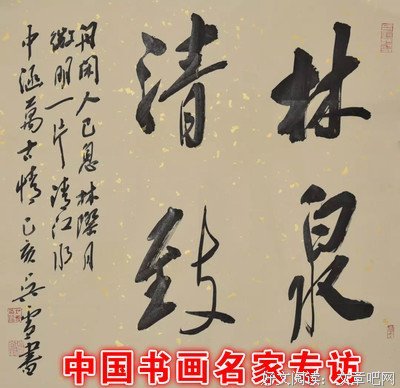 林泉
清致
舟閑人已息林際月
微明一片清江水
中涵萬古情 己亥吴雪書
中国书画名家专访
好文阅读：文章吧网